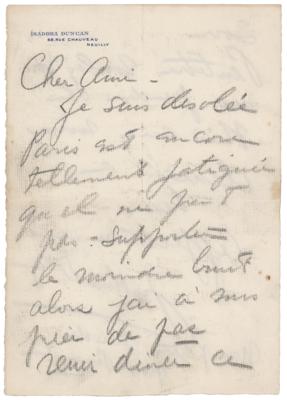 ISADORA DUNCAN
68, RUE CHAUVEAU
NEUILLY
Cher Ami -
Je suis desolée
Paris est encore
tellement fatiguée
qu'el ne peut
pas - supporter
le moindre bruit
alors j'ai à
de pas
venir ce